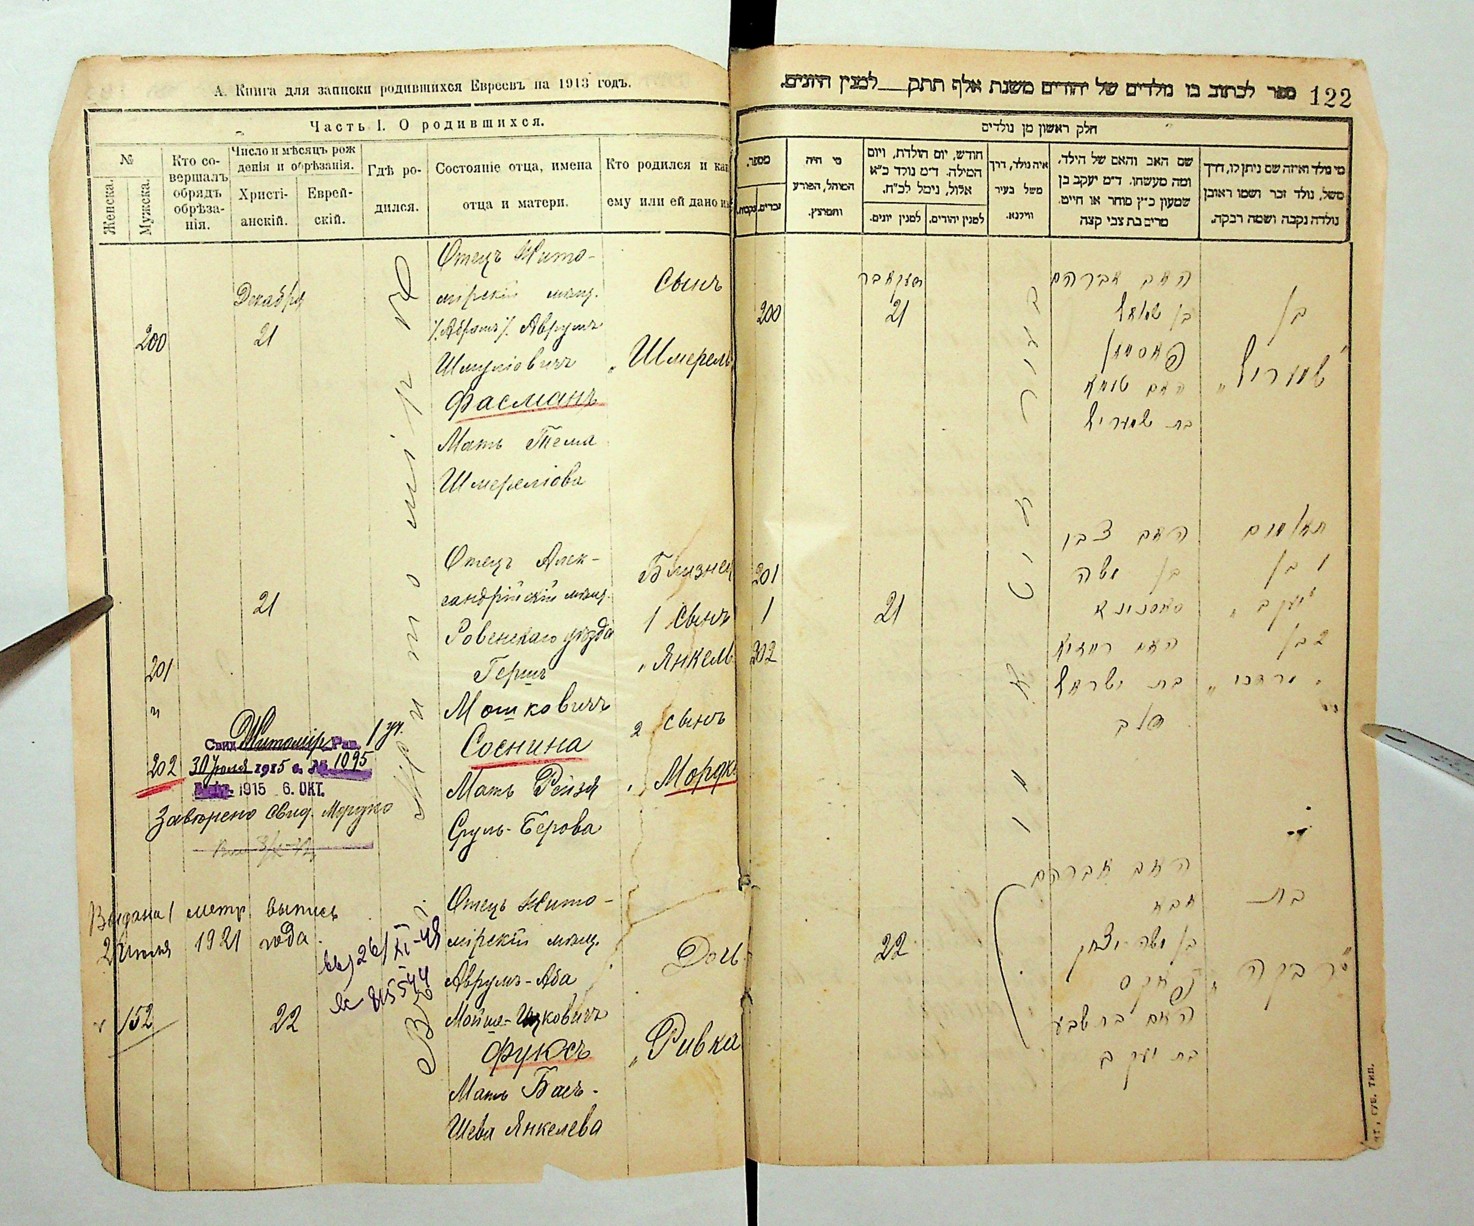 А. Книга для записки родившихся Евреевъ на 1913 годъ.
Часть I. О родившихся.
№
Женска.
Мужска.
Кто со-
вершалъ
обрядъ
обрѣза-
нія.
Число и мѣсяцъ рож
денія и обрѣзанія.
Христі-
анскій.
Еврей-
скій.
Гдѣ ро-
дился.
Состояніе отца, имена
отца и матери.
Кто родился и как
ему или ей дано и
Въ г. Житомірѣ
200
Декабря
21
Отецъ Жито-
мірскій мѣщ.
/Абрамъ/. Аврумъ
Шмуліовичъ
Фасманъ
Мать Тема
Шмереліова
Сынъ
„Шмерель
201
"
202
21
Отецъ Алек-
сандрійскій мѣщ.
Ровенскаго уѣзда
Гершъ
Мошковичъ
Соснина
Мать Рейзя
Сруль-Берова
Близнец
1 сынъ
„Янкель
2 сынъ
„Мордк
Свид. Житомір. Рав. 1 уч.
30 Іюля 1915 г. № 1095
1915 6. ОКТ.
Завѣрено свид. Мордко
Выдана 1 метр. выпись
2 Июля 1921 года
26/II-48
152
22
Отецъ Жито-
мірскій мѣщ.
Аврумъ-Аба
Мойше-Ицковичъ
Фуксъ
Мать Бась-
Шева Янкелева
Дочь
„Ривка
ספר לכתוב בו נולדים של יהודים משנת אלף תתק__למנין היונים.
122
חלק ראשון מן נולדים
מספר.
נקבות.
זכרים.
מי היה
המוהל, הפורע
והמוצץ.
חודש, יום הולדת, ויום
המילה. ד״מ נולד כ״א
אלול, נימל לכ״ח.
למנין יונים.
למנין יהודים.
איה נולד, דרך
משל בעיר
ווילנא.
שם האב והאם של הילד.
ומה מעשהו. ד״מ יעקב בן
שמעון כ״ץ סוחר או חיים.
מרים בת צבי קצה
מי נולד ואיזה שם ניתן לו, דרך
משל, נולד זכר ושמו ראובן
נולדה נקבה ושמה רבקה.
200
דעקאבר
21
האב אברהם
בן שמואל
פאסמאן
האם טעמא
בת שמעריל
בן
„שמעריל"
201
1
202
21
האב צבי
בן משה
סאסנינא
האם רייזיא
בת ישראל
בער
תאומים
1 בן
„יעקב"
2 בן
„מרדכי"
22
האב אברהם
אבא
בן משה יצחק
פוקס
האם בת שבע
בת יעקב
בת
„רבקה"